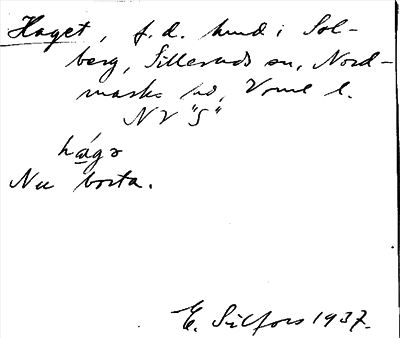 Haget, f.d. hmd i Sol-
berg, Silleruds sn, Nord-
marks hd, Vrml l.
NV "S"
hágə
Nu borta.
E. Silfors 1937.